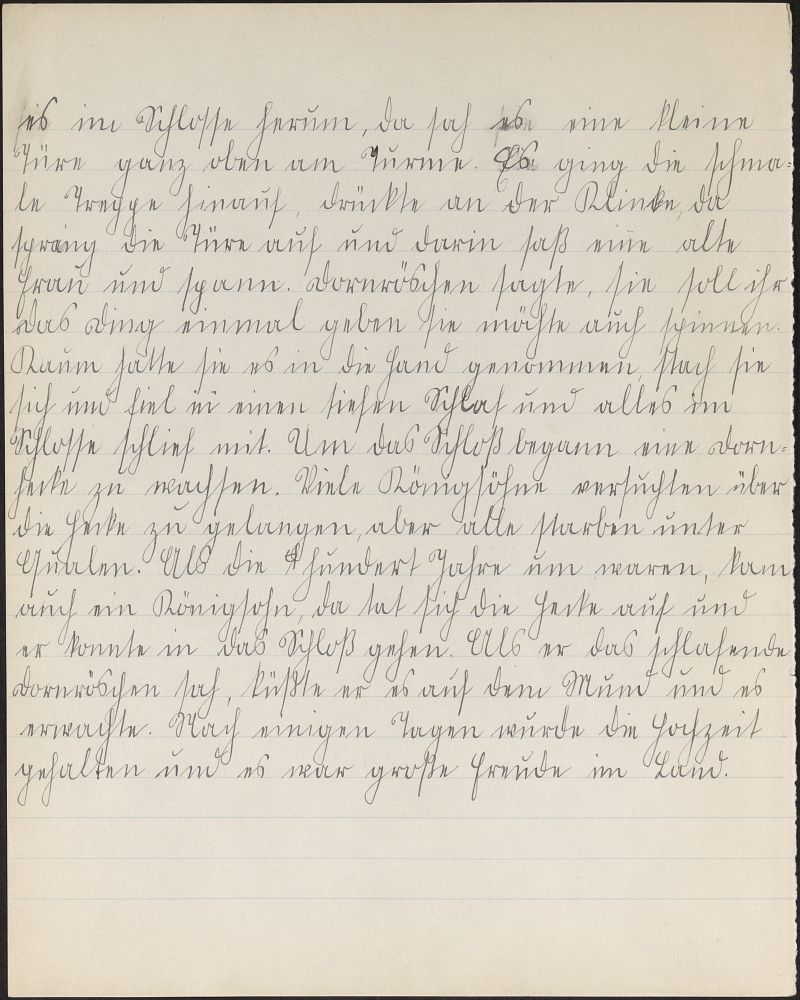 es im Schlosse herum, da sah es eine kleine
Türe ganz oben am Turme. Es ging die schma-
le Treppe hinauf, drückte an der Klinke, da
sprang die Türe auf und darin saß eine alte
Frau und spann. Dornröschen sagte, sie soll ihr
das Ding einmal geben sie möchte auch spinnen.
Kaum hatte sie es in die Hand genommen, stach sie
sich und fiel in einen tiefen Schlaf und alles im
Schlosse schlief mit. Um das Schloß begann eine Dorn-
hecke zu wachsen. Viele Königsöhne versuchten über
die Hecke zu gelangen, aber alle starben unter
Qualen. Als die hundert Jahre um waren, kam
auch ein Königsohn, da tat sich die Hecke auf und
er konnte in das Schloß gehen. Als er das schlafende
Dornröschen sah, küßte er es auf dem Mund und es
erwachte. Nach einigen Tagen wurde die Hochzeit
gehalten und es war große Freude im Land.